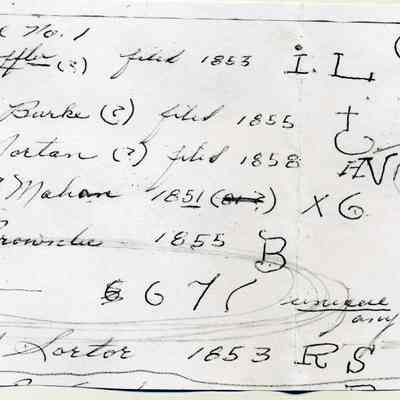 No. 1
(?) filed 1853 i. L
Burke (?) filed 1855
ortan (?) filed 1858
Mahan 1851 (or ?) X6
rownlee 1855 B
6 7 (
unique
any
Sortor 1853 R S